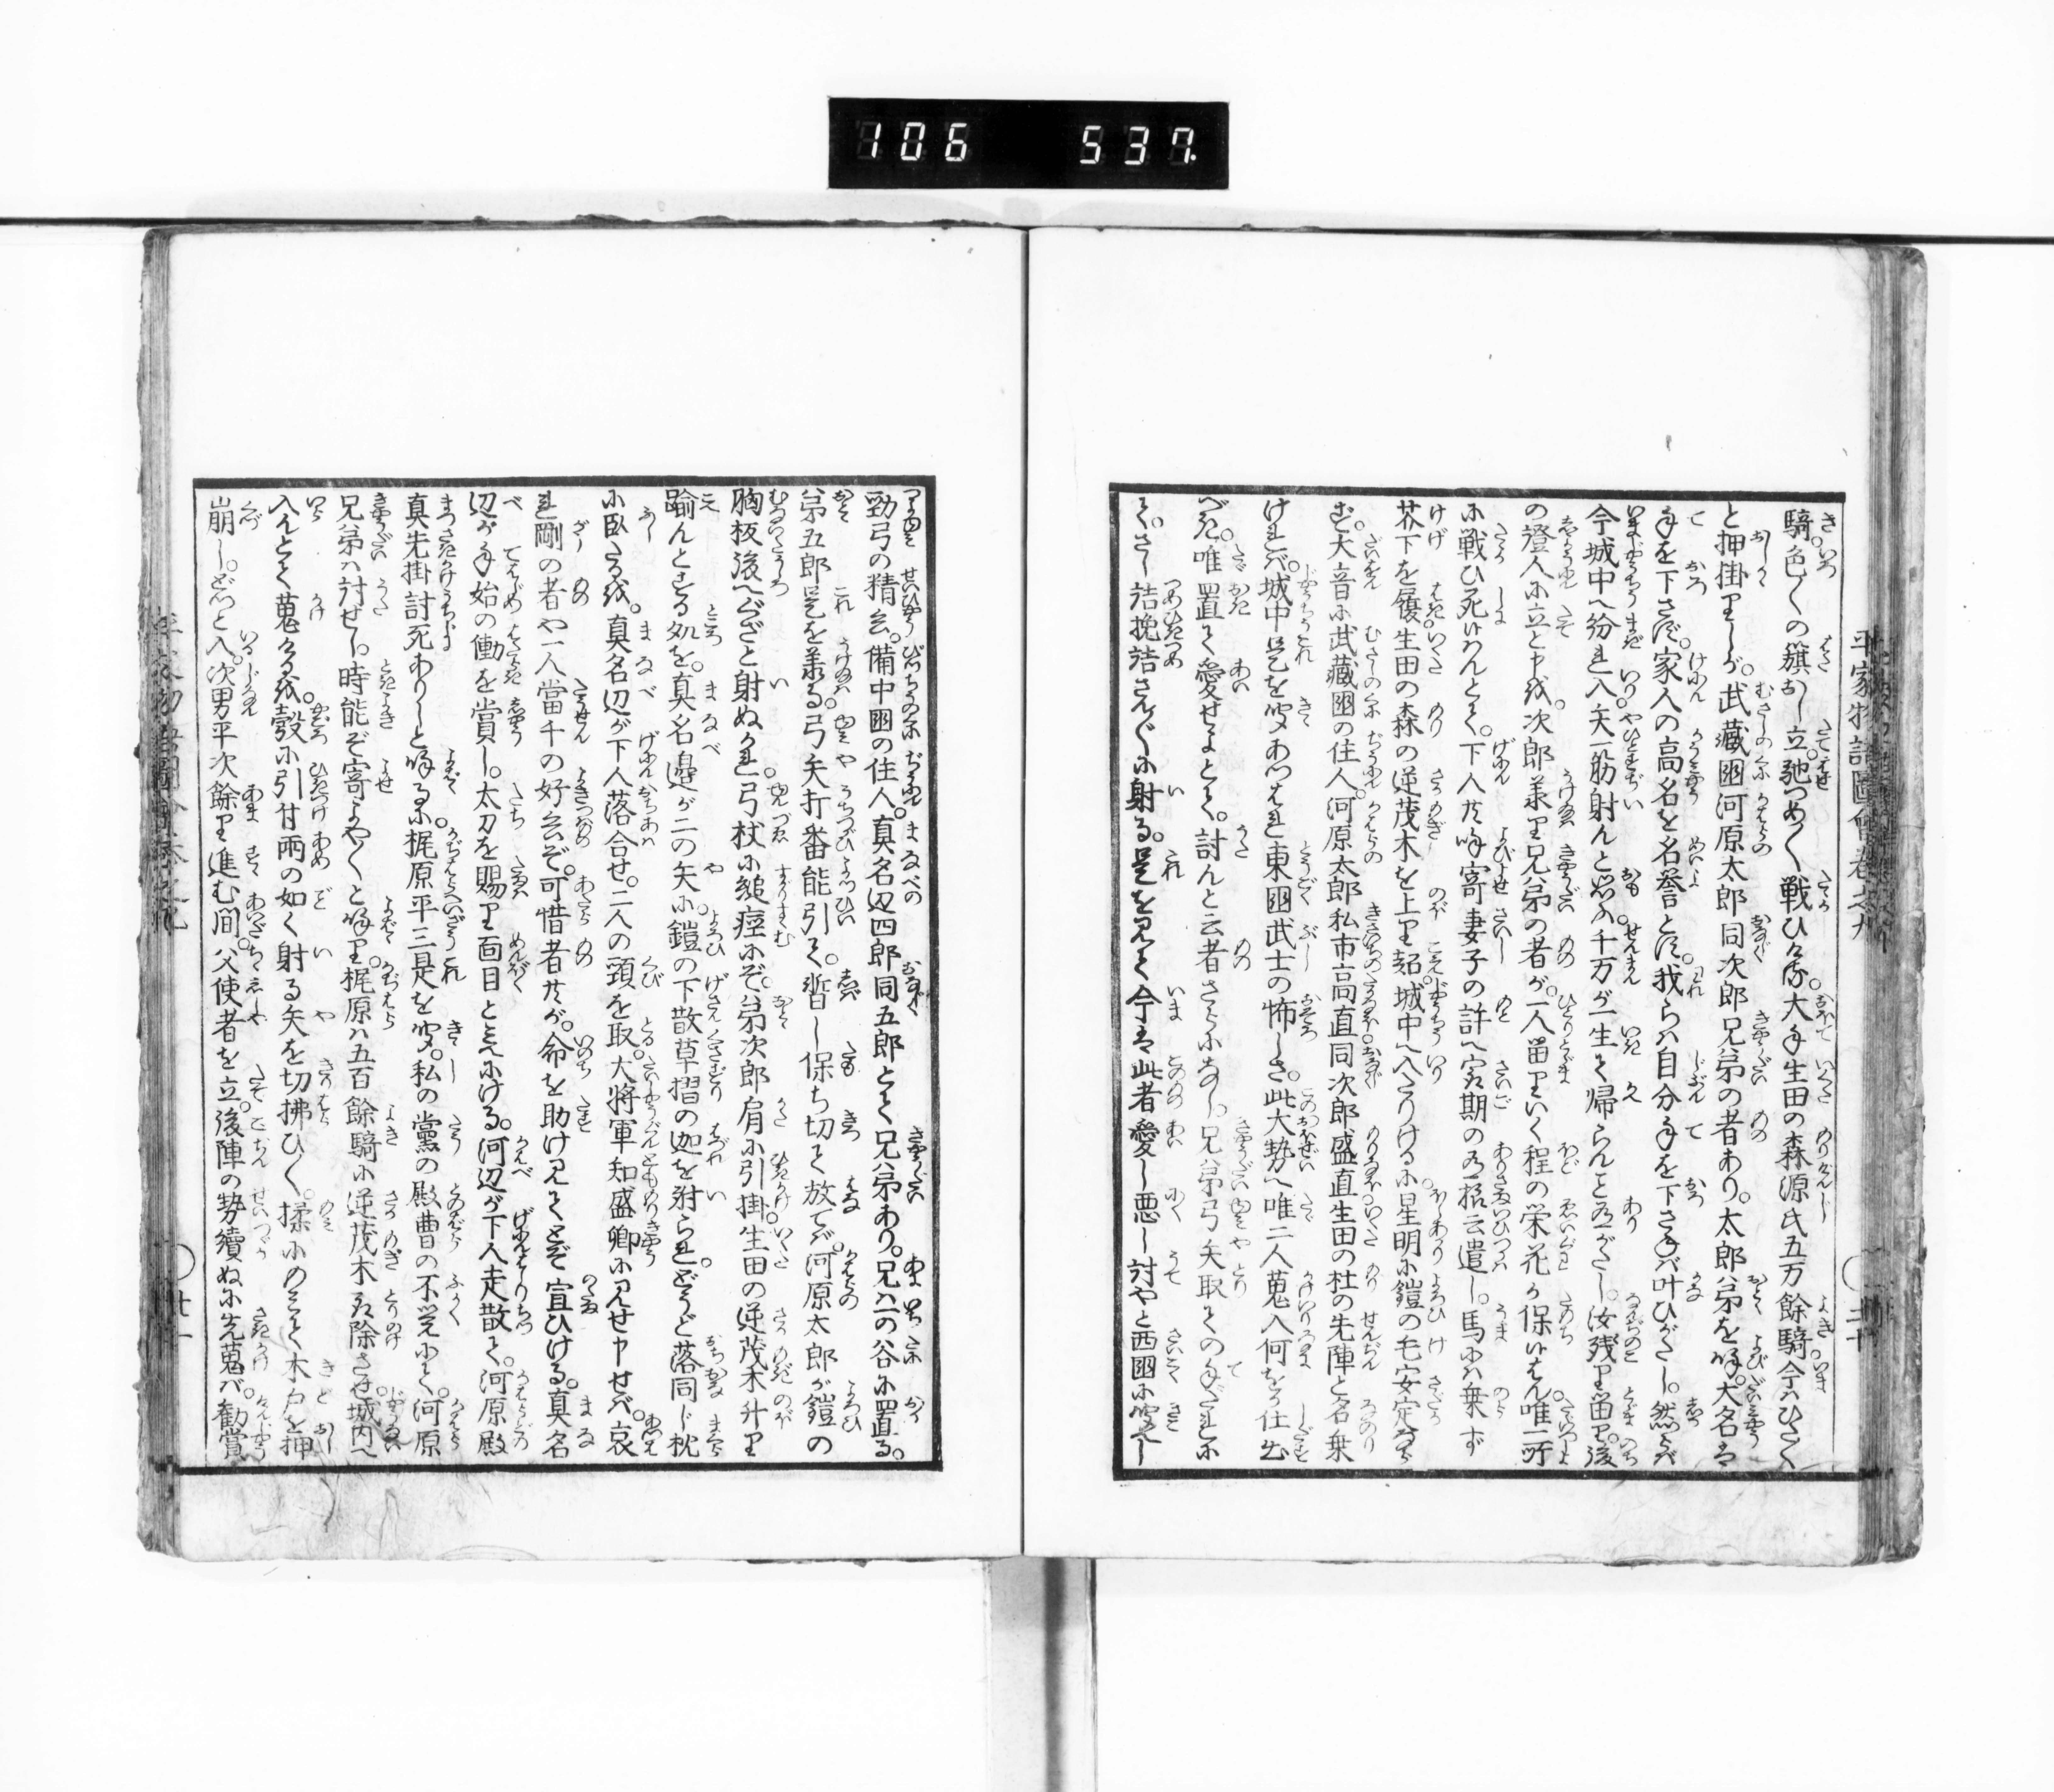 106 537
騎。色〱の籏おし立。馳つめ〱戦ひける。大手生田の森源氏五万餘騎今ハひた〱
と押掛りしが。武藏国河原太郎同次郎兄弟の者あり。太郎弟を呼。大名は
手を下さで。家人の高名を名誉とに。我らハ自分手を下さねバ叶ひがたし。然らバ
今城中へ紛れ入。矢一筋射んと思ふ。千万が一生て帰らんと有がたし。汝残り留り。後
の證人に立と申を。次郎兼り兄弟の者が。一人留りいく程の栄花か保ハん。唯一所
に戦ひ死ハんとて。下人共呼寄妻子の許へ最期の有様云遣し。馬にハ乗ず
芥下を履生田の森の逆茂木を上り超。城中へ入たりける。に星明に鎧の毛安定ならず
大音に武藏国の住人。河原太郎私市高直同次郎盛直生田の杜の先陣と名乗
けれバ。城中是を聞あつはれ東国武士の怖しさ。此大勢へ唯二人蒐入何をか仕出
べき。唯置て愛せよとて。討んと云者さらになし。兄弟弓矢取ての手だれに
て。さし詰挽詰さんざんに射る。是を見て今は此者愛し悪し討やと西国に聞へし
平家物語圖會卷之九
二十
勁弓の精兵。備中国の住人。真名辺四郎同五郎とて兄弟あり。兄ハ一の谷に置る。
弟五郎是を兼る。弓矢打番能引て。暫し保ち切て放てバ。河原太郎が鎧の
胸板後へぐざと射ぬかれ。弓杖に縋痙にぞ。弟次郎肩に引掛。生田の逆茂木升り
踰んとする処を。真名邉が二の矢に。鎧の下散草摺の迦を射られ。どうど落同じ枕
に臥たるを。真名辺が下人落合せ。二人の頭を取。大将軍知盛卿に見せ申せバ。哀
れ剛の者や一人當千の好兵ぞ。可惜者共が。命を助け見てとぞ宣ひける。真名
辺が手始の働を賞し。太刀を賜り面目とえにける。河辺が下人走散て。河原殿
真先掛討死ありしと呼るに。梶原平三是を聞。私の黨の殿曹の不覚にて。河原
兄弟ハ討せし。時能ぞ寄よや〱と呼り。梶原ハ五百餘騎に逆茂木取除させ城内へ
入んとて蒐けるを。殻に引付雨の如く射る矢を切拂ひ〱。揉にのみて木戸を押
崩し。どつと入。次男平次餘り進む間。父使者を立。後陣の勢續ぬに先蒐バ。勸賞
廿一